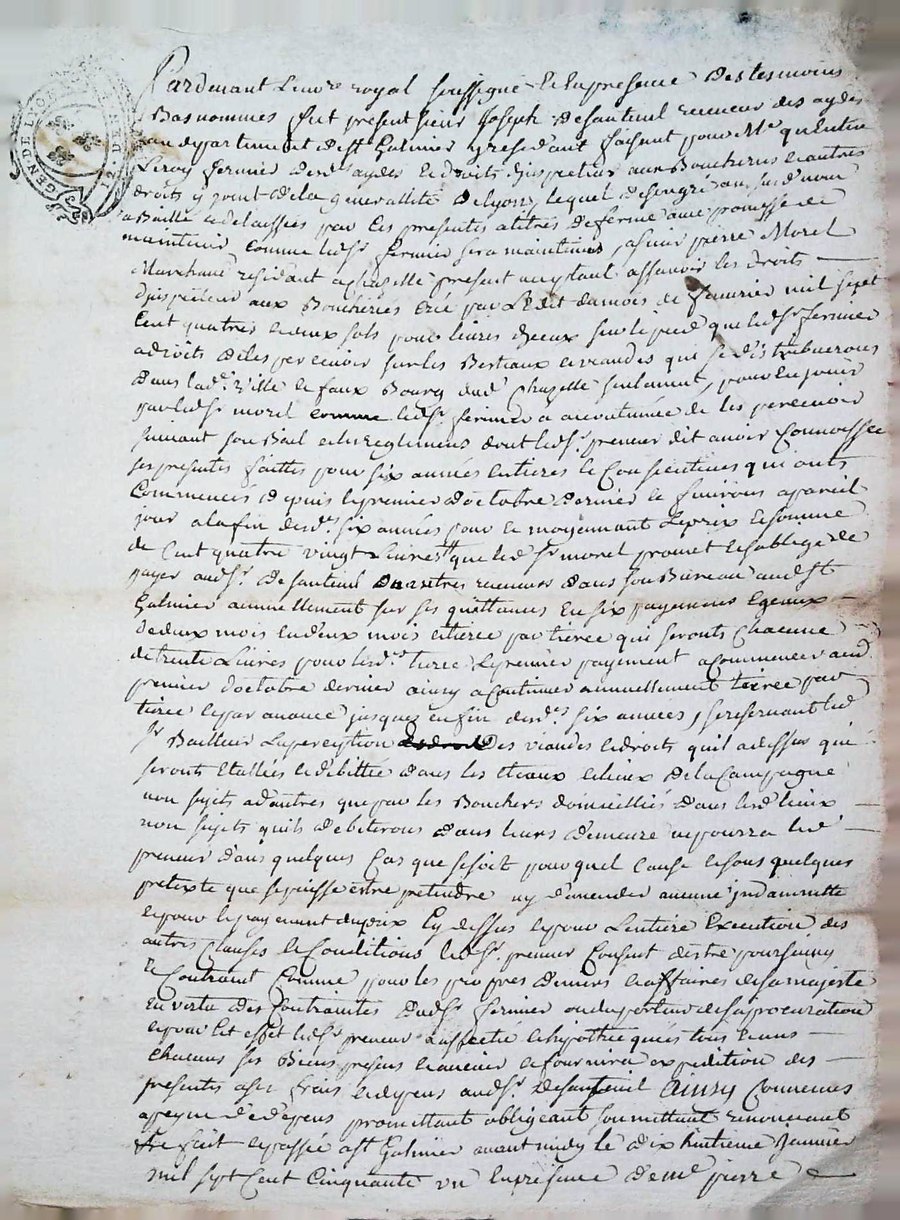 GEN. DE LYON
MED. D. 21
Pardevant le no.re royal soussigné et en presence des tesmoins
Bas nommés fut present sieur Joseph desauteuil receveur des aydes
au departement de st Galmier y residant faisant pour Me quentin
Leroy fermier desd. aydes et droits d'jnspecteur aux Boucheries et autres
droits y joint de la generallité de Lyon, lequel de son gré
a Baillé et delaissées par ces presentes a titres de ferme avec promesse de
maintenir comme led. sr fermier sera maintenus, a sieur pierre Morel
Marchand residant a chazelle present acceptant assavoir les droits
d'jnspecteur aux Boucheries créé par L'Edit du mois de fevrier mil sept
Cent quatres et deux sols pour livres d'iceux sur le pied que led. sr fermier
a droits de les percevoir sur les Bestiaux et viandes qui se distribuerons
dans lad. ville et faux Bourg dud. Chazelle seulement, pour en jouir
par led. sr morel comme led. sr fermier a accoutumée de les percevoir
suivant son Bail et les Reglemens dont led. sr preneur dit avoir Connoissce
ses presentes faittes pour six années entieres et Consecutives qui onts
Commencés depuis le premier d'octobre dernier et finirons a pareil
jour a la fin desd. six années pour et moyennant le prix et somme
de Cent quatre vingt Livres que led. sr morel promet et s'oblige de
payer aud. sr desauteuil ou autres receveurs dans son Bureau aud. st
Galmier annuellement sur ses quittances en six payemens egeaux
de deux mois en deux mois et tierce par tierce qui seronts chacune
de trente Livres pour lesd. tierce le premier payement a Commencer aud.
premier d'octobre dernier ainsy a Continuer annuellement tierce par
tierce et par avance jusques en fin desd. six années, se reservant led.
sr Bailleur la perception des viandes et droits quil a dessus qui
seronts Etallés et debittée dans les et lieux de la Campagne
non sujets a d'autres que par les Bouchers domicilliés dans lesd. lieux
non sujets quils debiterons dans leurs demeure ne pourra led.
preneur dans quelques Cas que ce soit pour quel Cause et sous quelques
pretexte que se puisse estre pretendre ny demander aucune jndamnitté
et pour le payement du prix Cy dessus et pour L'entiere Execution des
autres Clauses et Conditions led. sr. preneur Consent d'estre poursuivy
et Contraint Comme pour les propres deniers et affaires de sa majeste
en vertu des Contraintes dud. sr fermier ou du porteur de sa procuration
et pour Cet effet led. sr preneur a affecté et hypothequés tous et uns
chacuns ses Biens presens et avenir et fournira expedition des
presentes a ses frais et depens aud. sr. desauteuil ainsy Convenues
a peyne d'e depens promettant obligeant soumettant renoncant
&c fait et passé a st Galmier avant midy le dix huitieme janvier
mil sept Cent Cinquante un en presence de me pierre